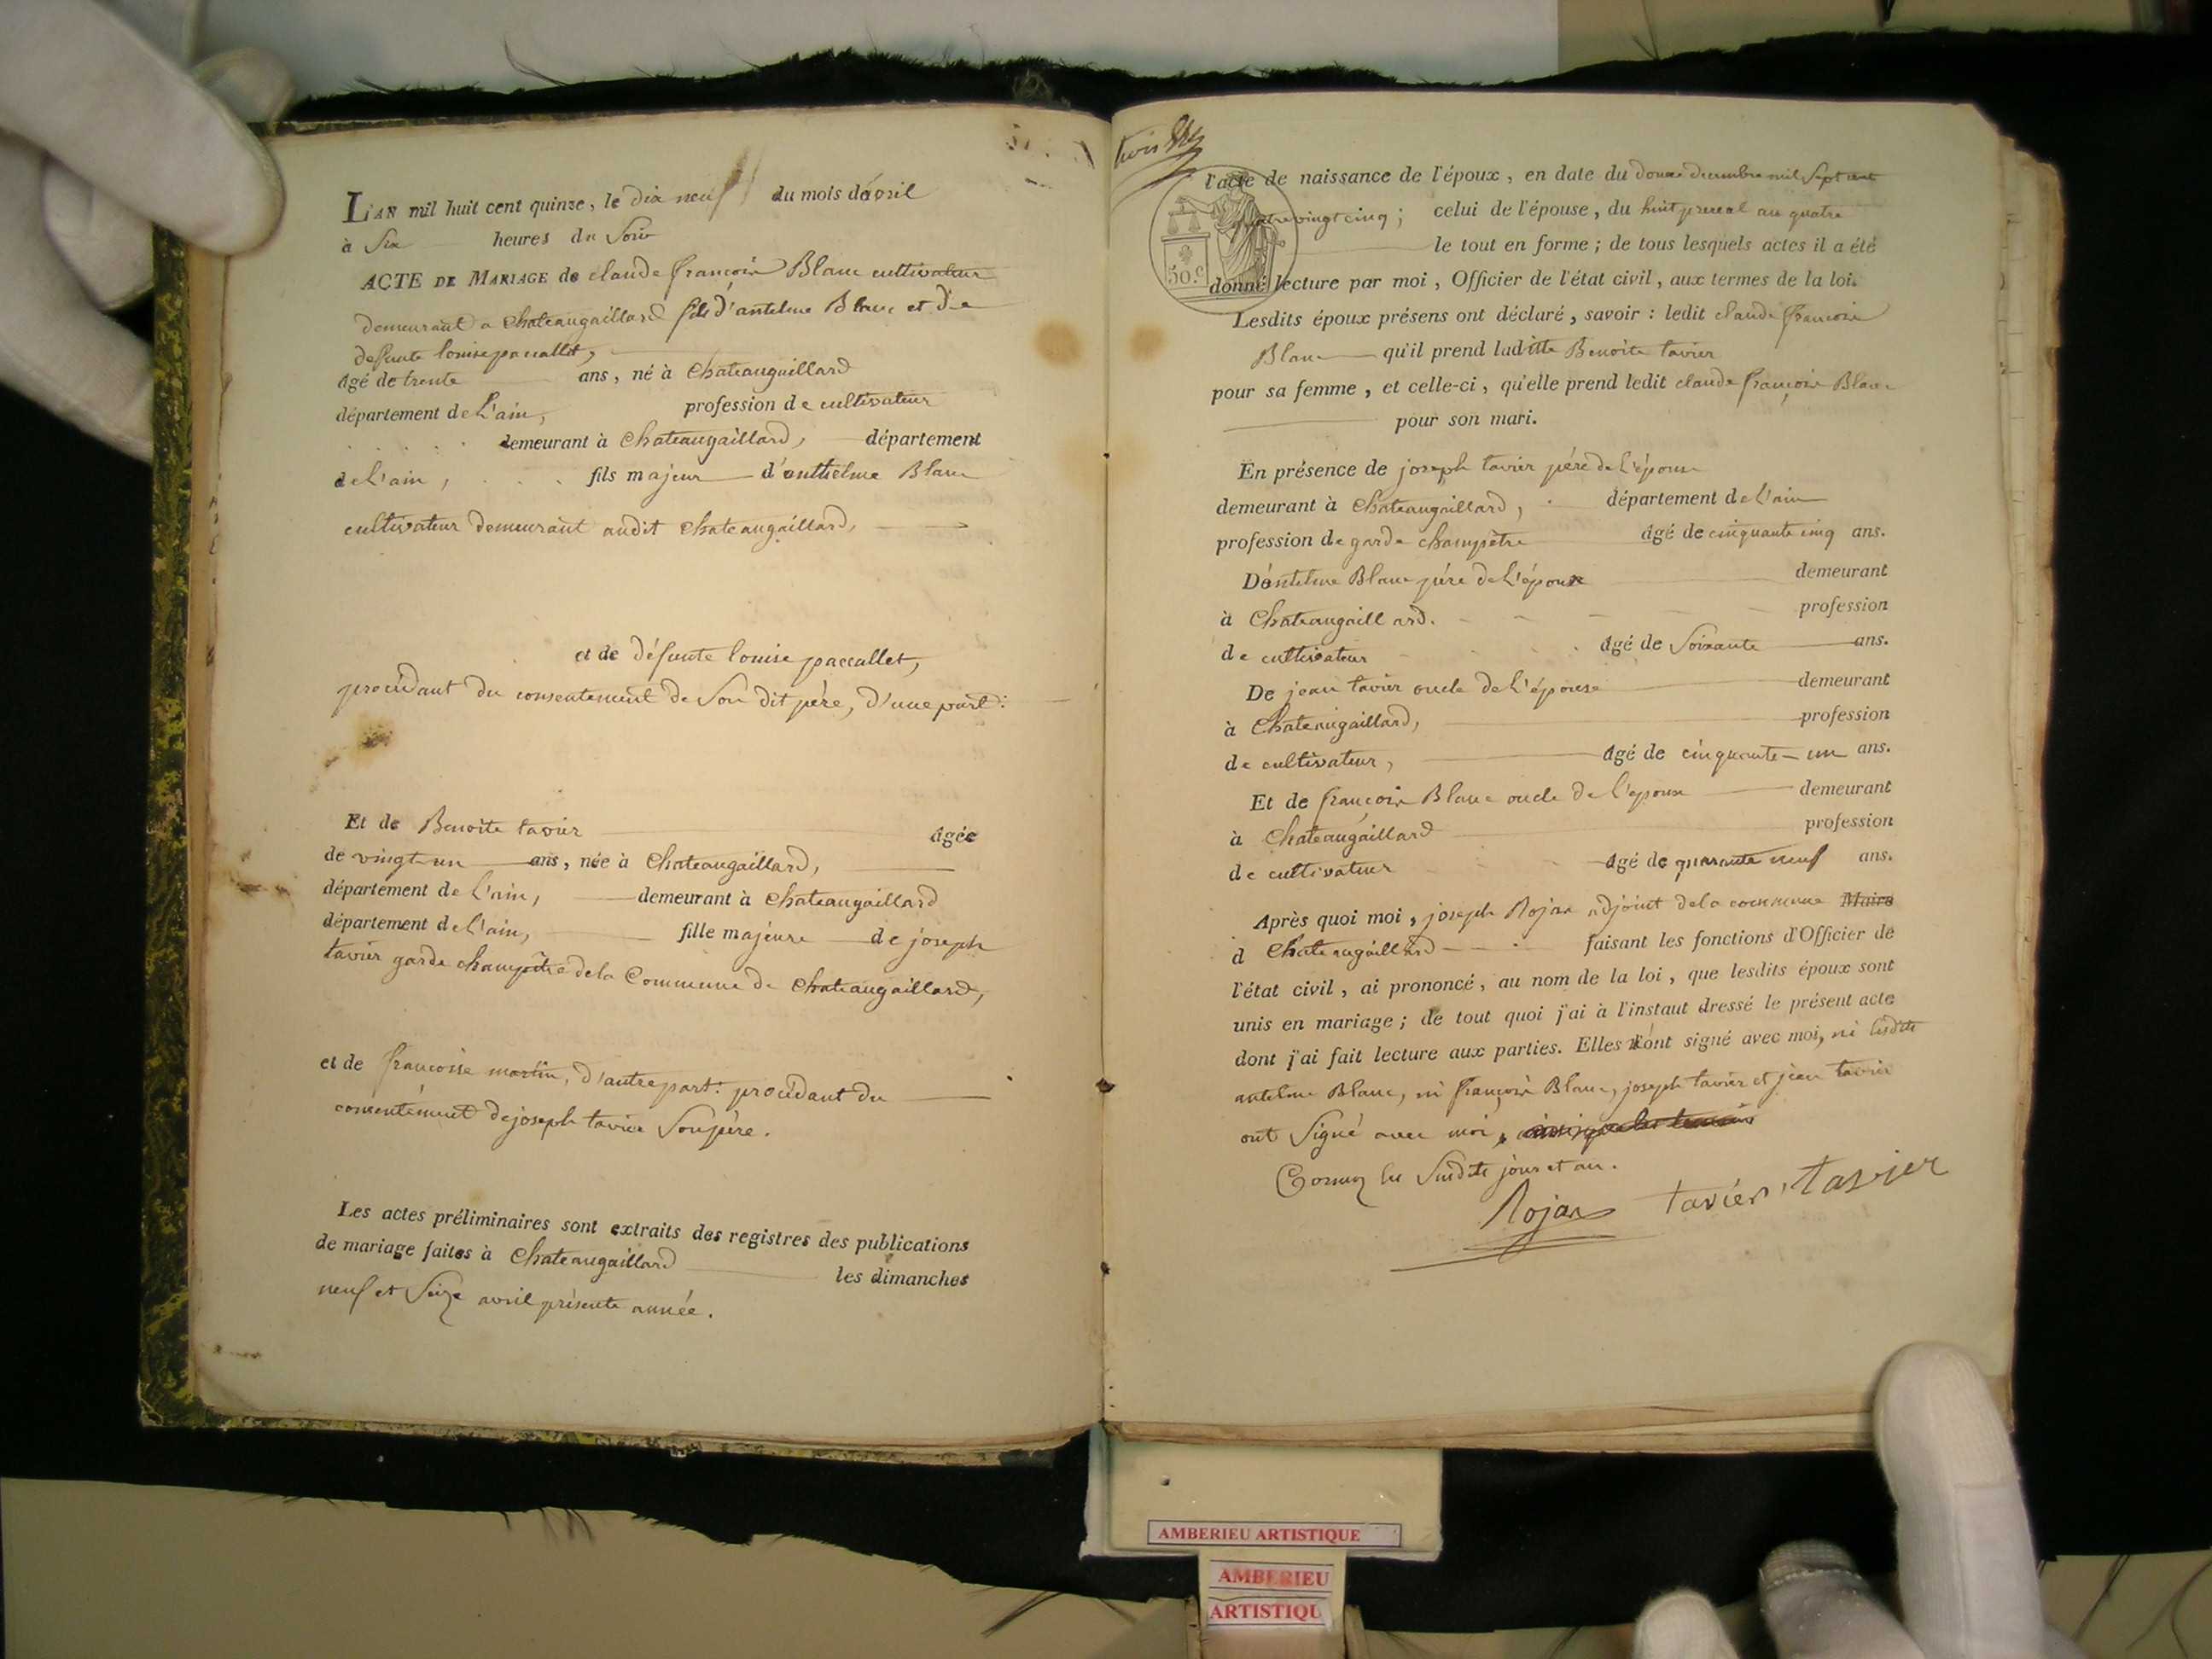 L'AN mil huit cent quinze, le dix neuf du mois d'avril
à Six heures du Soir
ACTE DE MARIAGE de claude françois Blanc cultivateur
demeurant a chateaugaillard fils d'antelme Blanc et de
defunte louise paccallet,
âgé de trente ans, né à Chateaugaillard
département de L'ain, profession de cultivateur
demeurant à Chateaugaillard, département
de L'ain, fils majeur d'anthelme Blanc
cultivateur demeurant audit chateaugaillard,
et de défunte louise paccallet,
procédant du consentement de Son dit père, d'une part:
Et de Benoite tavier âgée
de vingt un ans, née à Chateaugaillard,
département de L'ain, demeurant à Chateaugaillard
département de L'ain, fille majeure de joseph
tavier garde champêtre de la Commune de Chateaugaillard,
et de francoise martin, d'autre part: procédant du
consentement de joseph tavier Son père.
Les actes préliminaires sont extraits des registres des publications
de mariage faites à Chateaugaillard les dimanches
neuf et Seize avril présente année.
trois
l'acte de naissance de l'époux, en date du douze decembre mil Sept cent
quatre vingt cinq; celui de l'épouse, du huit prereal an quatre
le tout en forme; de tous lesquels actes il a été
50.c
donné lecture par moi, Officier de l'état civil, aux termes de la loi.
Lesdits époux présens ont déclaré, savoir: ledit claude françois
Blanc qu'il prend laditte Benoite tavier
pour sa femme, et celle-ci, qu'elle prend ledit claude françois Blanc
pour son mari.
En présence de joseph tavier père de L'épouse
demeurant à Chateaugaillard, département de L'ain
profession de garde champêtre âgé de cinquante cinq ans.
D'antelme Blanc père de L'époux demeurant
à Chateaugaillard. profession
de cultivateur âgé de Soixante ans.
De jean tavier oncle de L'épouse demeurant
à Chateaugaillard, profession
de cultivateur, âgé de cinquante-un ans.
Et de françois Blanc oncle de l'epoux demeurant
à Chateaugaillard profession
de cultivateur âgé de quarante neuf ans.
Après quoi moi, joseph Rojan adjoint de la commune Maire
d Chateaugaillard faisant les fonctions d'Officier de
l'état civil, ai prononcé, au nom de la loi, que lesdits époux sont
unis en mariage; de tout quoi j'ai à l'instant dressé le présent acte
dont j'ai fait lecture aux parties. Elles n'ont signé avec moi, ni lesdits
antelme Blanc, ni françois Blanc, joseph tavier et jean tavier
ont Signé avec moi,
les Susdits jour et an.
Rojan tavier tavier
AMBERIEU ARTISTIQUE
AMBERIEU
ARTISTIQU